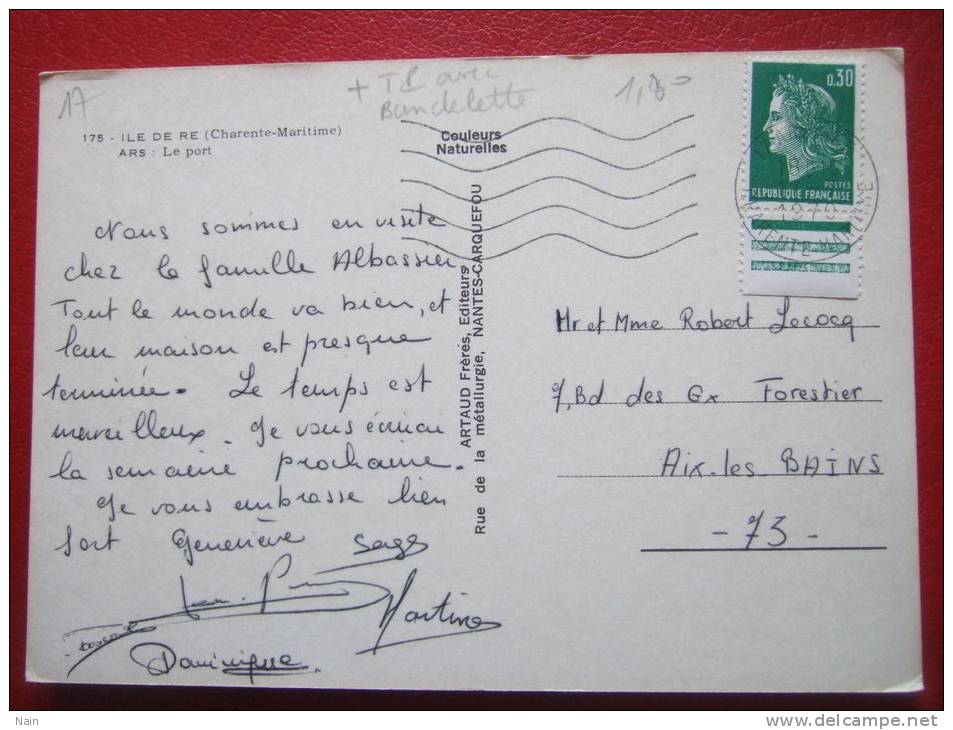 17
+ TB avec
Bandelette
175 - ILE DE RE (Charente-Maritime)
ARS : Le port
Couleurs
Naturelles
0,30
POSTES
REPUBLIQUE FRANÇAISE
1970
Nous sommes en visite
chez la famille Albassier
Tout le monde va bien, et
leur maison est presque
terminée. Le temps est
merveilleux. Je vous écrirai
la semaine prochaine.
Je vous embrasse bien
fort Geneviève
Martine
Dominique
ARTAUD Frères, Editeurs
Rue de la métallurgie, NANTES-CARQUEFOU
Mr et Mme Robert Lococq
7, Bd des Gx Forestier
Aix-les BAINS
- 73 -
Nain
www.delcampe.net